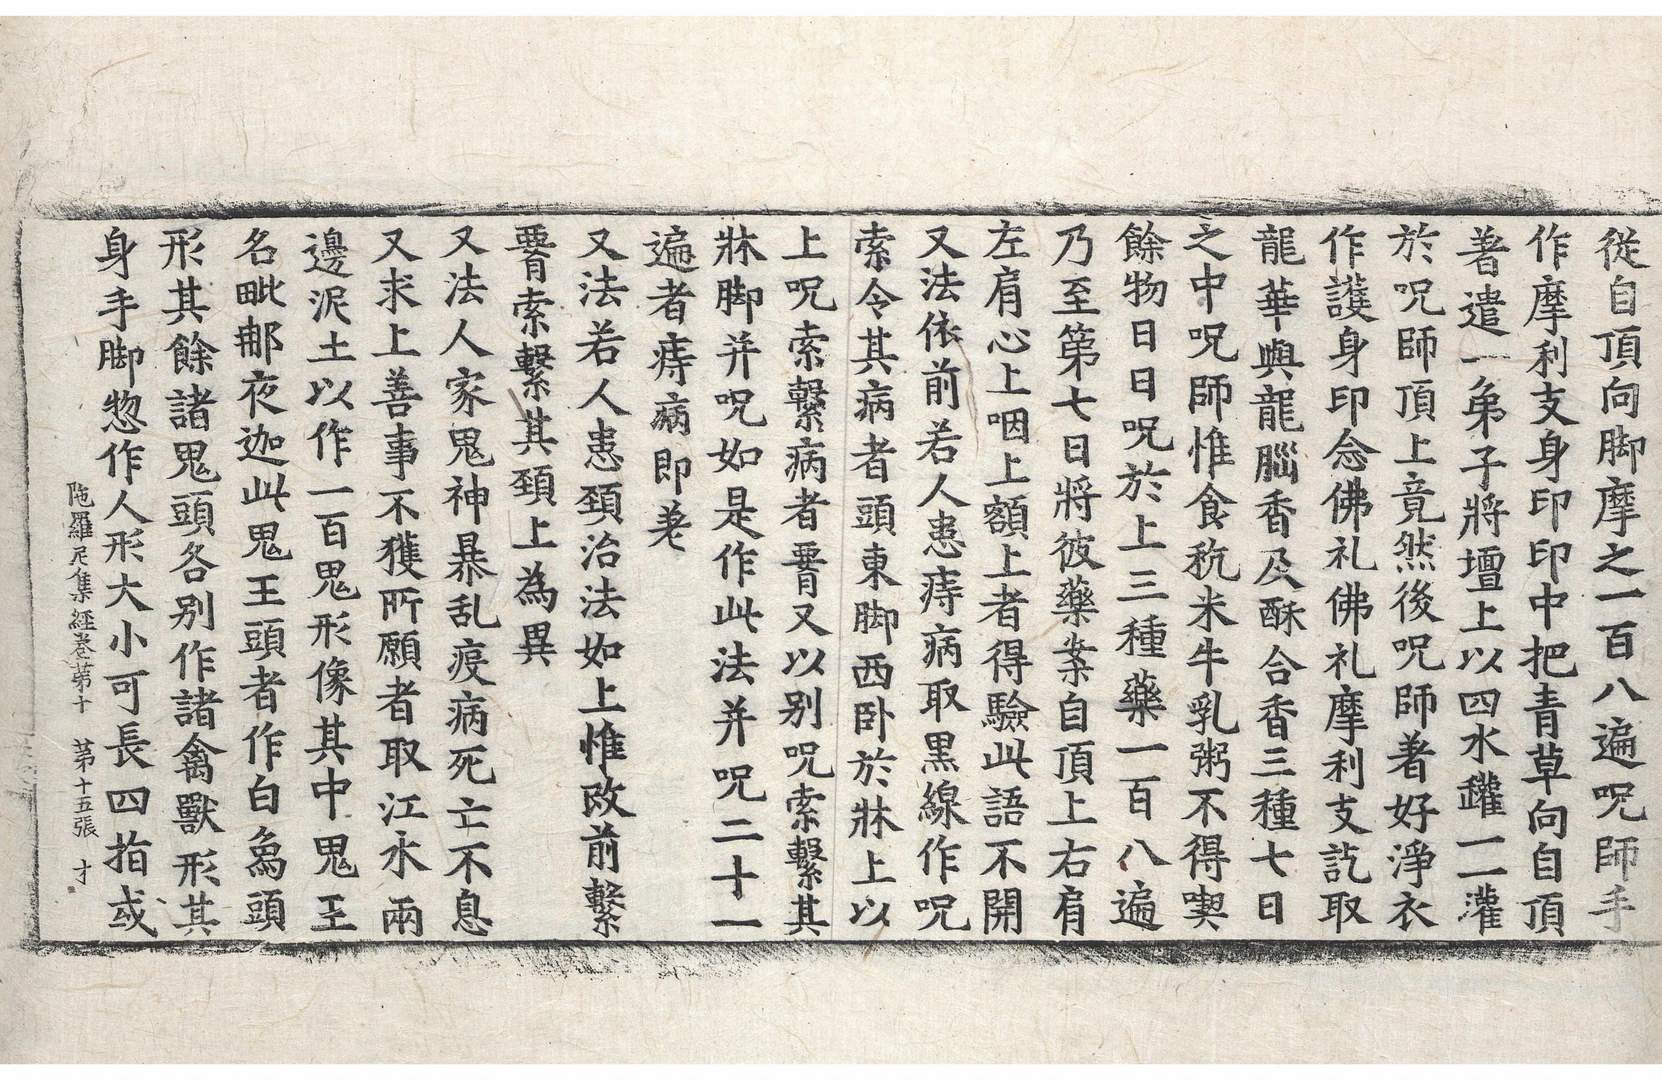 從自頂向脚摩之一百八遍呪師手
作摩利支身印印中把青草向自頂
著遣一弟子將壇上以四水鑵一一灌
於呪師頂上竟然後呪師著好淨衣
作護身印念佛礼佛礼摩利支訖取
龍華與龍腦香及酥合香三種七日
之中呪師惟食秔米牛乳粥不得喫
餘物日日呪於上三種藥一百八遍
乃至第七日將彼藥案自頂上右肩
左肩心上咽上額上者得驗此語不開
又法依前若人患痔病取黒線作呪
索令其病者頭東脚西卧於牀上以
上呪索繫病者𦝫又以別呪索繫其
牀脚并呪如是作此法并呪二十一
遍者痔病即差
又法若人患頚治法如上惟改前繫
𦝫索繫其頚上為異
又法人家鬼神暴乱疫病死亡不息
又求上善事不獲所願者取江水兩
邊泥土以作一百鬼形像其中鬼王
名毗那夜迦此鬼王頭者作白象頭
形其餘諸鬼頭各別作諸禽獸形其
身手脚惣作人形大小可長四指或
陁羅尼集經卷第十 第十五張 才